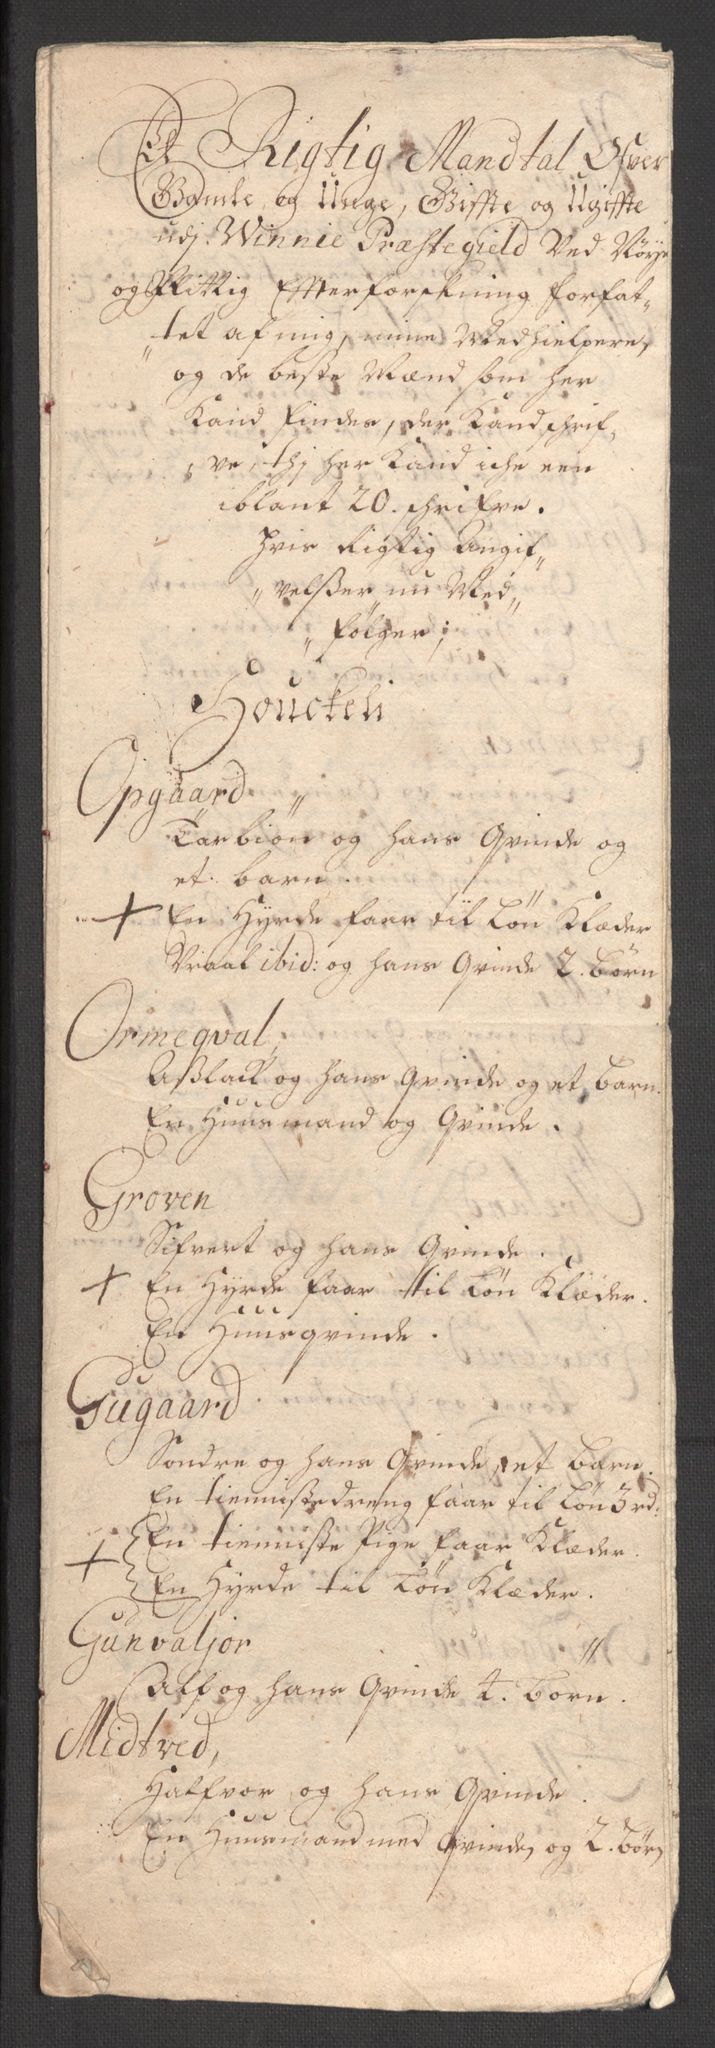 Et Rigtig Mandtal Ofver
Gamle og Unge, Giffte og Ugiffte
udj. Winnie Præstegield Ved Nøye
og flittig Effterforskning forfat-
tet af mig, mine Medhielpere,
og de beste Mænd som her
Kand findes, der Kand schrif-
ve, thj her Kand iche een
iblant 20. schrifve.
hvis Rigtig Angif„
„velßer nu Med„
„følger;
Houckeli
Opgaard
Tarbiøn og hans Qvinde og
et barn.
+ En Hyrde faar til Løn Klæder
Vraal ibid: og hans Qvinde 2. børn
Ormeqval,
Aßlack og hans Qvinde og et barn.
En Huusmand og Qvinde.
Groven
Sifvert og hans Qvinde.
+ En Hyrde faar til Løn Klæder.
En Huusqvinde.
Gugaard
Sondre og hans Qvinde, et barn.
En tienniste dreng faar til Løn 3 rd:
+ En tienniste Pige faar Klæder.
En Hyrde til Løn Klæder.
Gunvaljor
Alf og hans Qvinde 4. børn.
Midtved,
Halfvor og hans Qvinde.
En Huusmand med Qvinde, og 2. børn